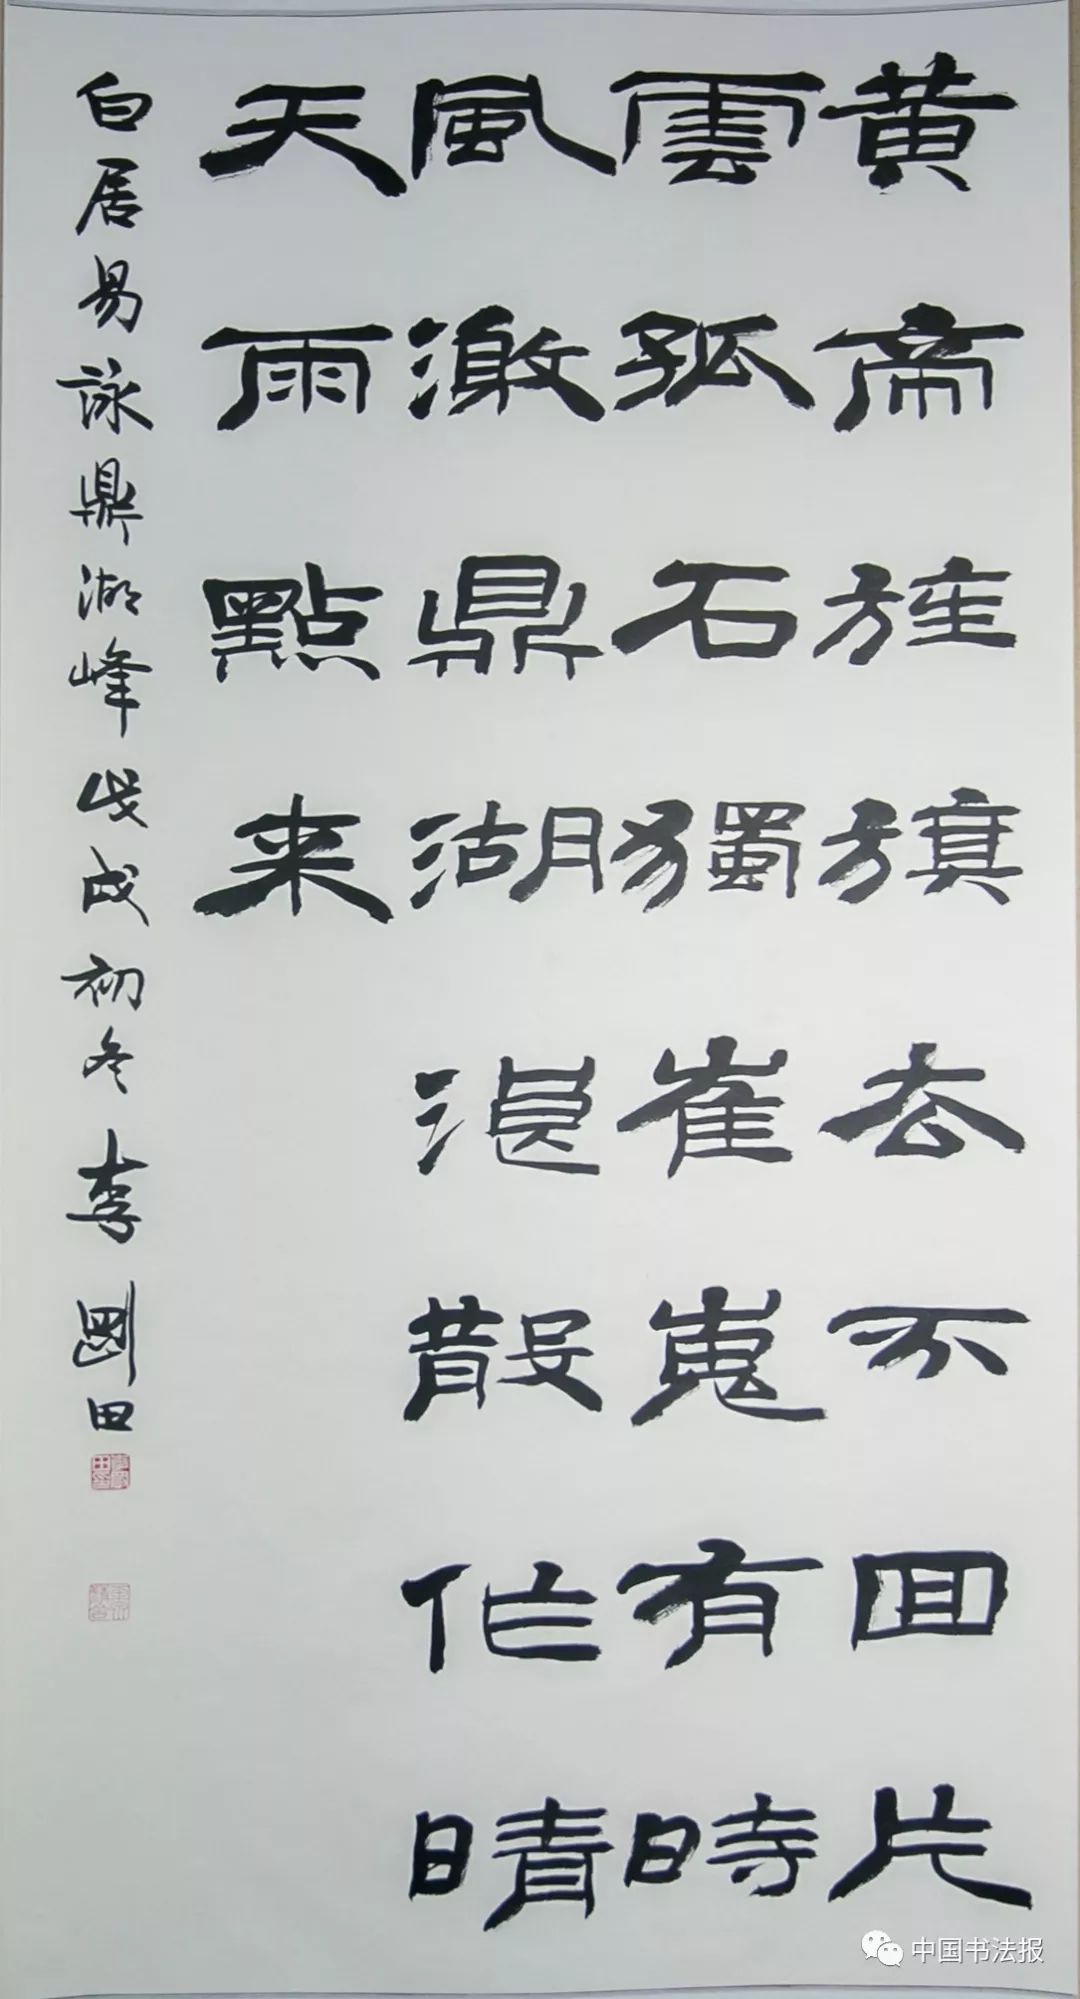 黄帝旌旗去不回片
雲孤石獨崔嵬有時
風激鼎湖浪散作晴
天雨點来
白居易詠鼎湖峰戊戌初冬李剛田
中国书法报